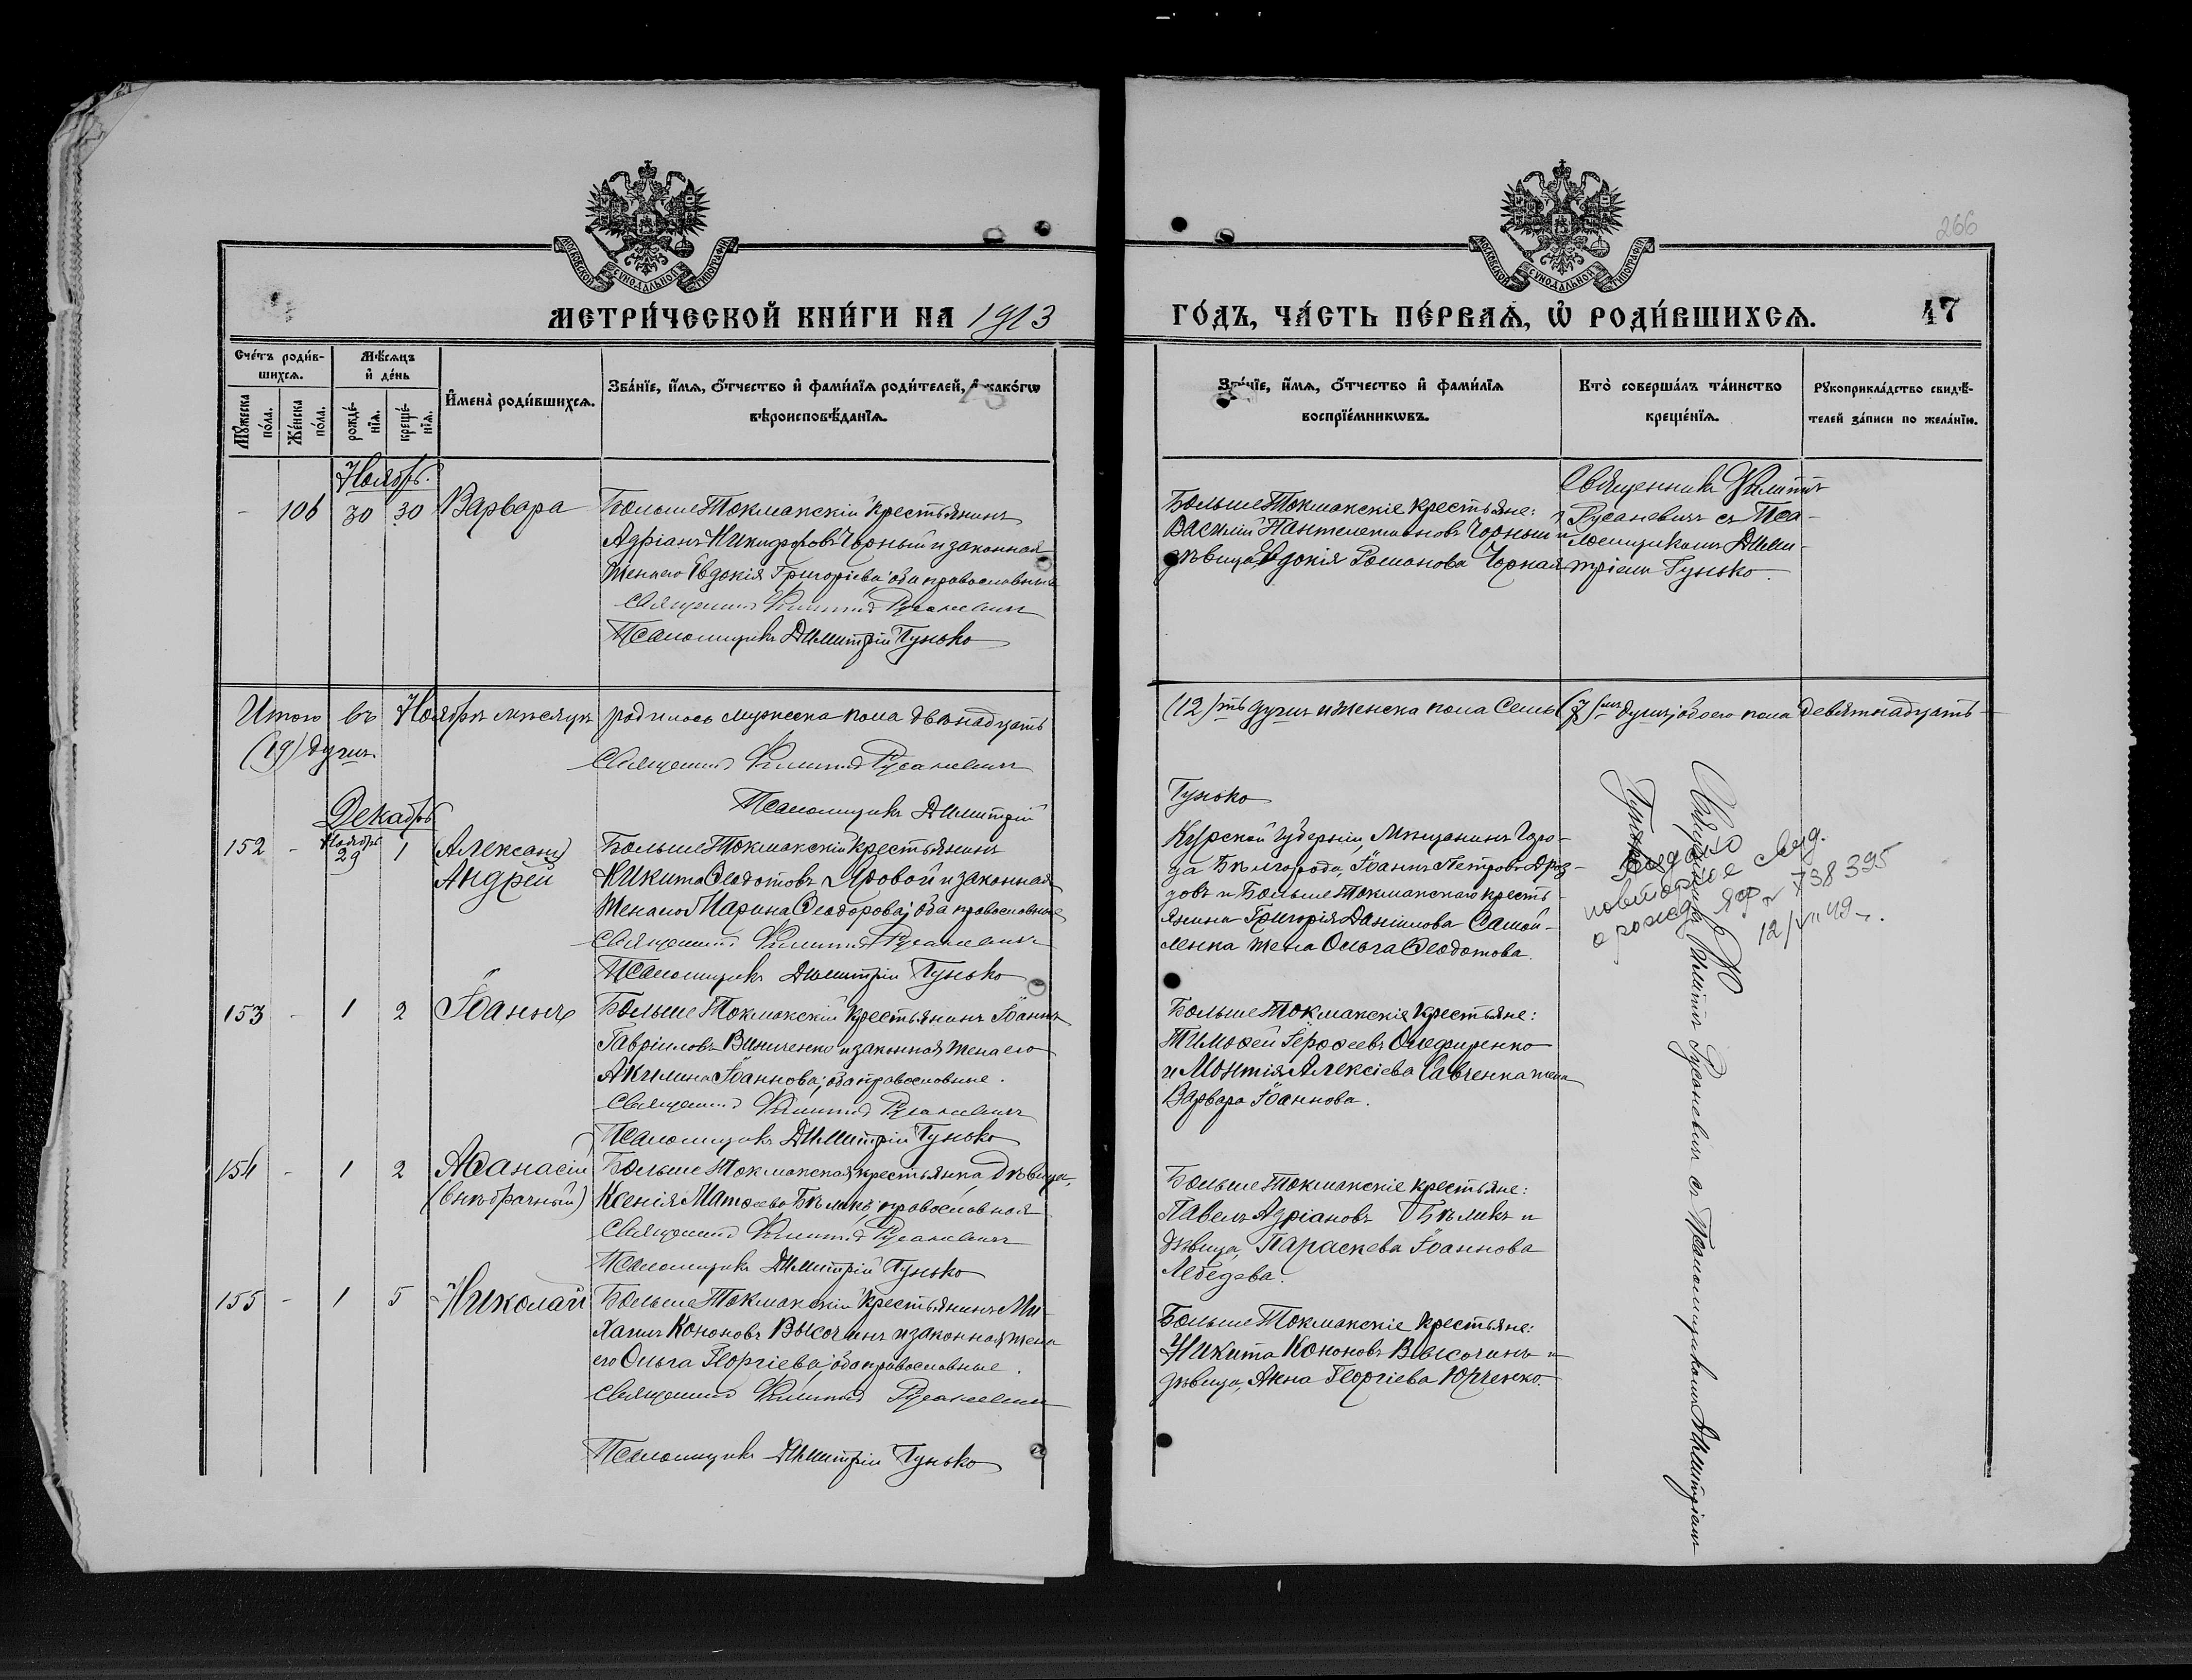 266
МОСКОВСКОЙ СѴНОДАЛЬНОЙ ТИПОГРАФІИ
МОСКОВСКОЙ СѴНОДАЛЬНОЙ ТИПОГРАФІИ
МЕТРИ́ЧЕСКОЙ КНИ́ГИ НА 1913
ГО́ДЪ, ЧА́СТЬ ПЕ́РВАѦ, Ѡ҆ РОДИ́ВШИХСѦ.
47
Сче́тъ роди́в-
шихсѧ.
Мꙋ́жеска по́ла.
Же́нска по́ла.
Мѣ́сѧцъ и҆ де́нь
рожде́-нїѧ.
креще́-нїѧ.
И҆мена̀ роди́вшихсѧ.
Зва́нїе, и҆́мѧ, ѻ҆́тчество и҆ фами́лїѧ роди́телей, и҆ како́гѡ
вѣроисповѣ́данїѧ.
Зва́нїе, и҆́мѧ, ѻ҆́тчество и҆ фами́лїѧ
воспрїе́мникѡвъ.
Кто̀ соверша́лъ та́инство
креще́нїѧ.
Рꙋкоприкла́дство свидѣ́-
телей за́писи по жела́нїю.
Ноябрь.
- 106 30 30 Варвара
Больше Токмакскій крестьянинъ
Адріанъ Никифоровъ Чорный и законная
жена его Евдокія Григоріева; оба православные
Священникъ Филиппъ Русаневичъ
Псаломщикъ Димитрій Гунько
Больше Токмакскіе крестьяне:
Василій Пантелеимоновъ Чорный и
дѣвица, Евдокія Романова Чорная
Священникъ Филиппъ
Русаневичъ съ Пса-
ломщикомъ Дими-
тріемъ Гунько.
Итого въ Ноябрѣ мѣсяцѣ родилось мужеска пола двѣнадцать
(12)ть душъ и женска пола семь (7)мь душъ; обоего пола девятнадцать
(19) душъ.
Священникъ Филиппъ Русаневичъ
Псаломщикъ Димитрій
Гунько
Декабрь
152 - Ноябрь 29 1 (Александ)
Андрей
Больше Токмакскій крестьянинъ
Никита Ѳеодотовъ Яровой и законная
жена его Марина Ѳеодорова; оба православные
Священникъ Филиппъ Русаневичъ
Псаломщикъ Димитрій Гунько
Курской губерніи, мѣщанинъ горо-
да Бѣлгорода, Іоаннъ Петровъ Дроз-
довъ и Больше Токмакскаго кресть-
янина Григорія Даніилова Самой-
ленка жена Ольга Ѳеодотова.
Священникъ Филиппъ Русаневичъ съ Псаломщикомъ Димитріемъ
Гунько
Выдано
повторное свид.
о рожд. ЯФ № 738395
12/VII 49 г.
153 - 1 2 Іоаннъ
Больше Токмакскій крестьянинъ Іоаннъ
Гавріиловъ Виниченко и законная жена его
Акилина Іоаннова; оба православные.
Священникъ Филиппъ Русаневичъ
Псаломщикъ Димитрій Гунько
Больше Токмакскіе крестьяне:
Тимоѳей Іероѳеевъ Олефиренко
и Алексіева Савченка жена
Варвара Іоаннова.
154 - 1 2 Аѳанасій
(внѣбрачный)
Больше Токмакская крестьянка, дѣвица,
Ксенія Матѳеева Бѣликъ; православная
Священникъ Филиппъ Русаневичъ
Псаломщикъ Димитрій Гунько
Больше Токмакскіе крестьяне:
Павелъ Адріановъ Бѣликъ и
дѣвица, Параскева Іоаннова
Лебедева.
155 - 1 5 Николай
Больше Токмакскій крестьянинъ Ми-
хаилъ Кононовъ Высочинъ и законная жена
его Ольга Георгіева; оба православные.
Священникъ Филиппъ Русаневичъ
Псаломщикъ Димитрій Гунько
Больше Токмакскіе крестьяне:
Никита Кононовъ Высочинъ и
дѣвица, Анна Георгіева Юрченко.